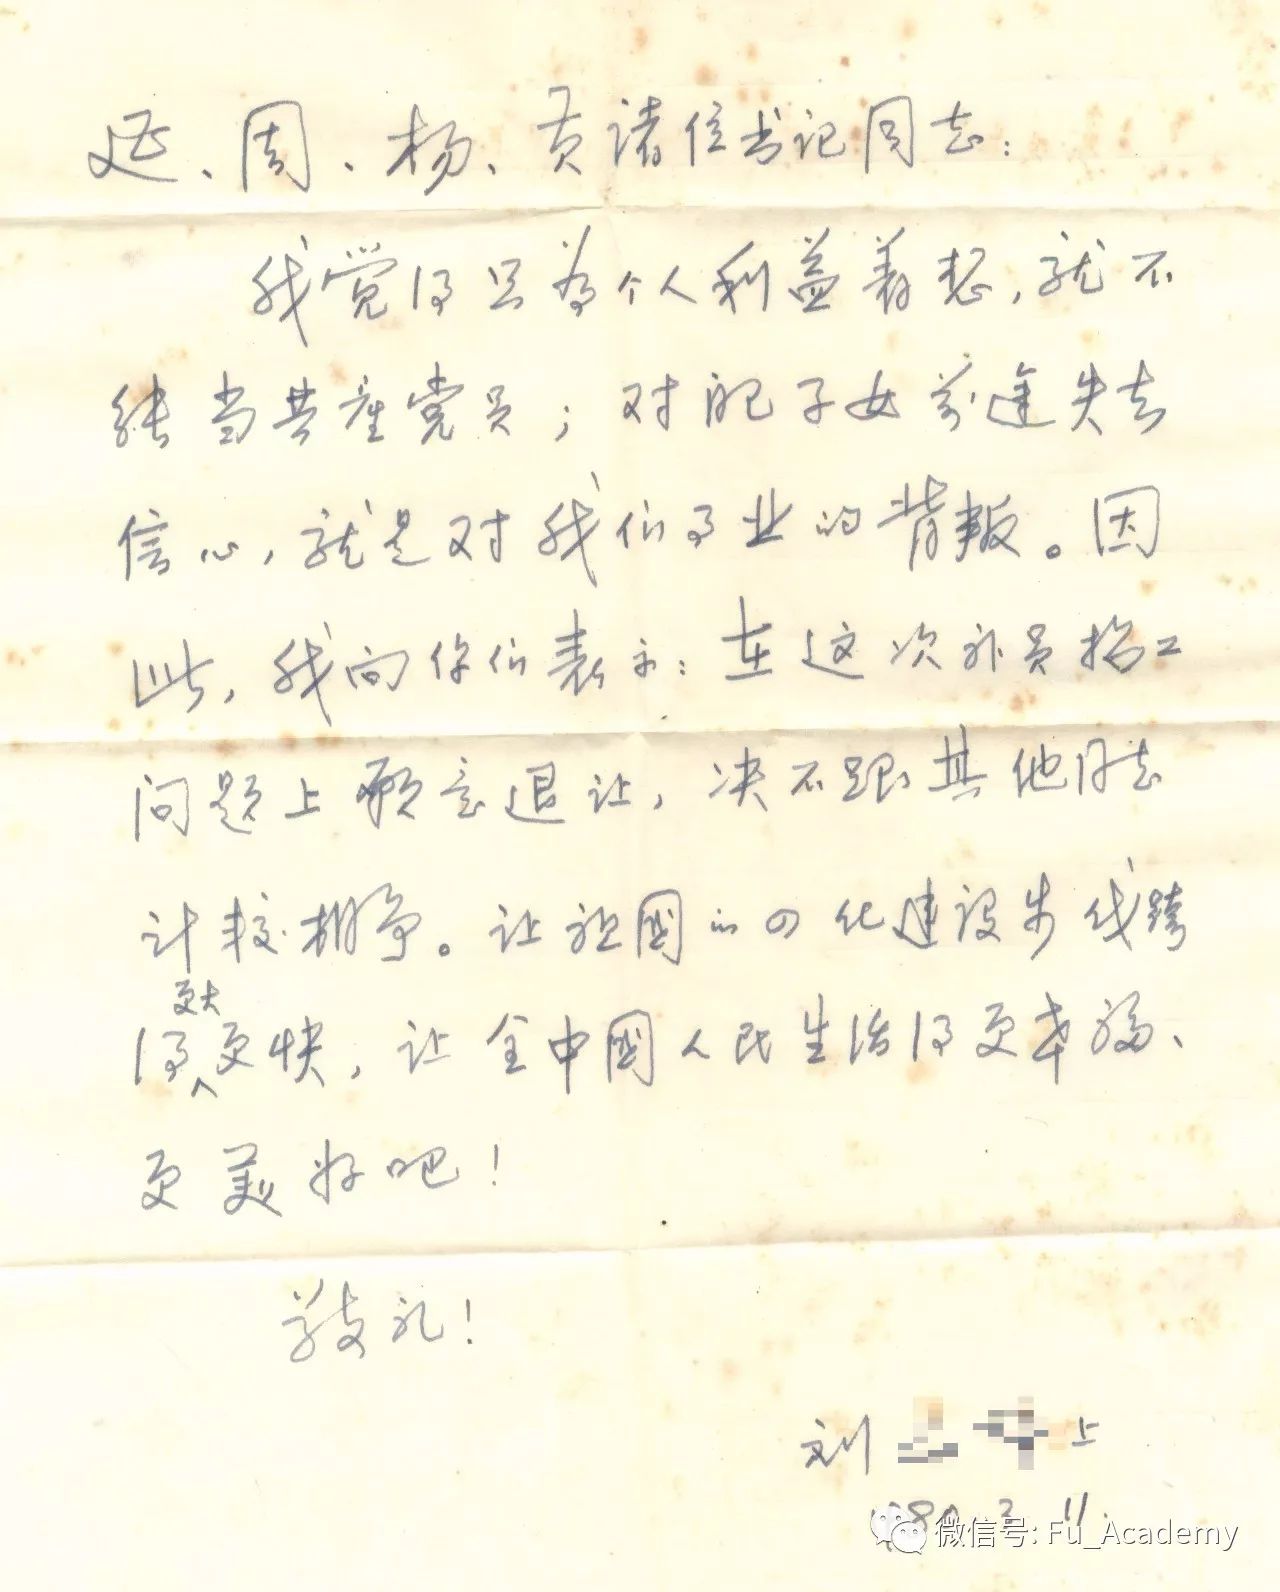 延、周、杨、黄诸位书记同志：
我觉得只为个人利益着想，就不
能当共产党员；对配子女前途失去
信心，就是对我们事业的背叛。因
此，我向你们表示：在这次补员招工
问题上愿意退让，决不跟其他同志
计较相争。让祖國的四化建设步伐跨
更大
得更快，让全中國人民生活得更幸福、
更美好吧！
敬礼！
刘 上
1980 3 11.
微信号: Fu_Academy